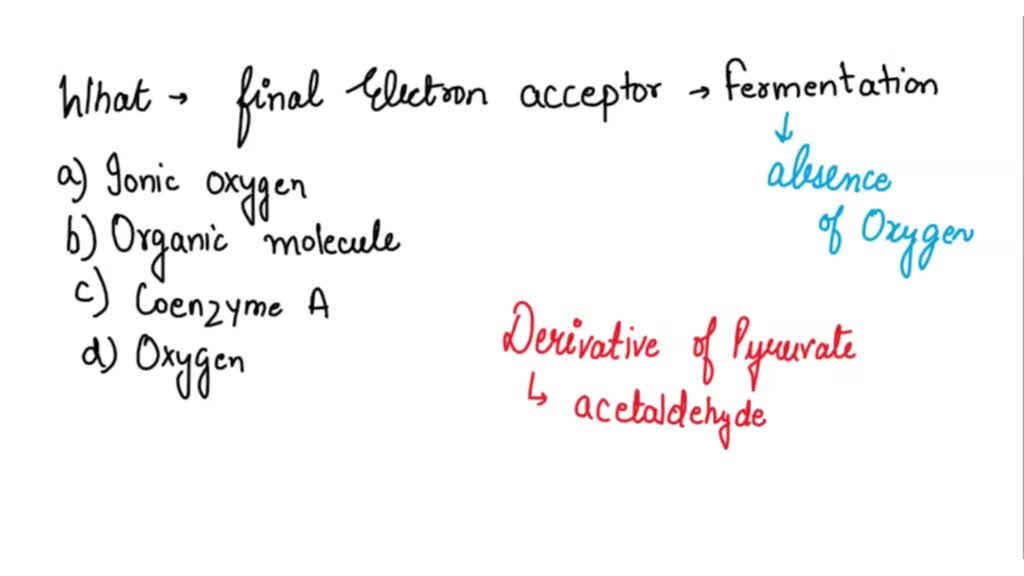 What → final Electron acceptor → fermentation
↓
absence
of Oxygen
a) Ionic oxygen
b) Organic molecule
c) Coenzyme A
d) Oxygen
Derivative of Pyuurate
↳ acetaldehyde